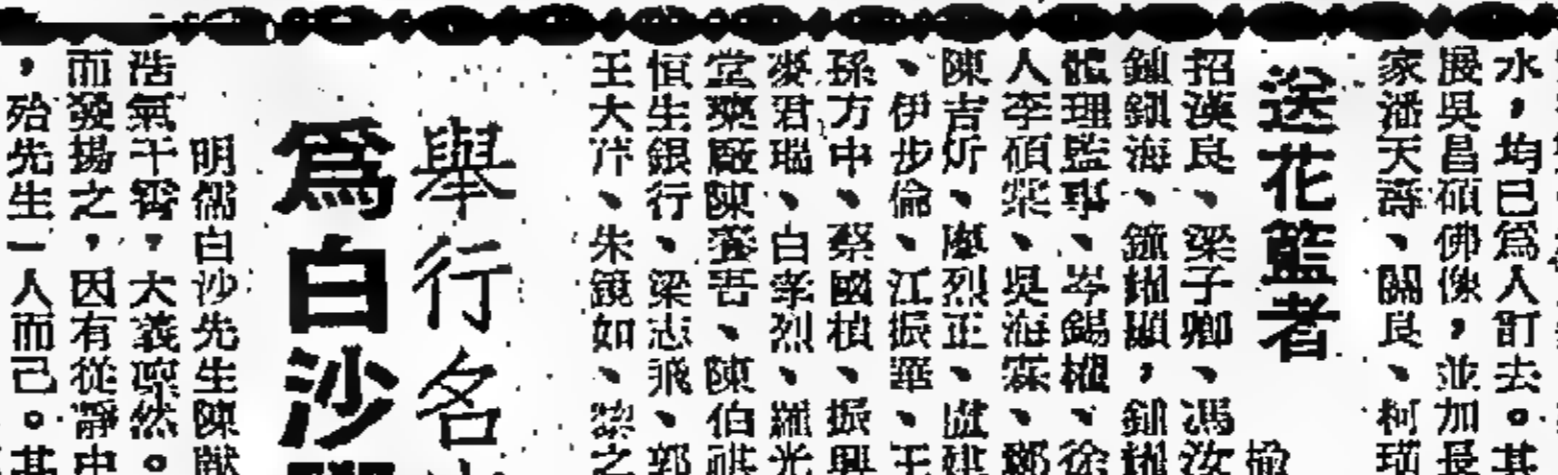 水，均已爲人訂去。其
展吳昌碩佛像，並加長
家潘天壽、關良、柯璜
送花籃者
招漢良、梁子卿、馮汝
鎮海、鐘耀顯，鍾耀
體理監事、岑錫權、徐
人李碩柴、吳海霖、鄭
陳吉炘、廖烈正、盧建
、伊步倫、江振華、王
孫方中、蔡國楨、振興
麥君瑞、白孝烈、羅光
堂藥廠陳養吾、陳伯祺
恒生銀行、梁志飛、郭
王大、朱鏡如、黎之
舉行名
爲白沙
明儒白沙先生陳獻
浩氣干霄，大義凜然。
而發揚之，因有從靜中
，殆先生一人而已。其